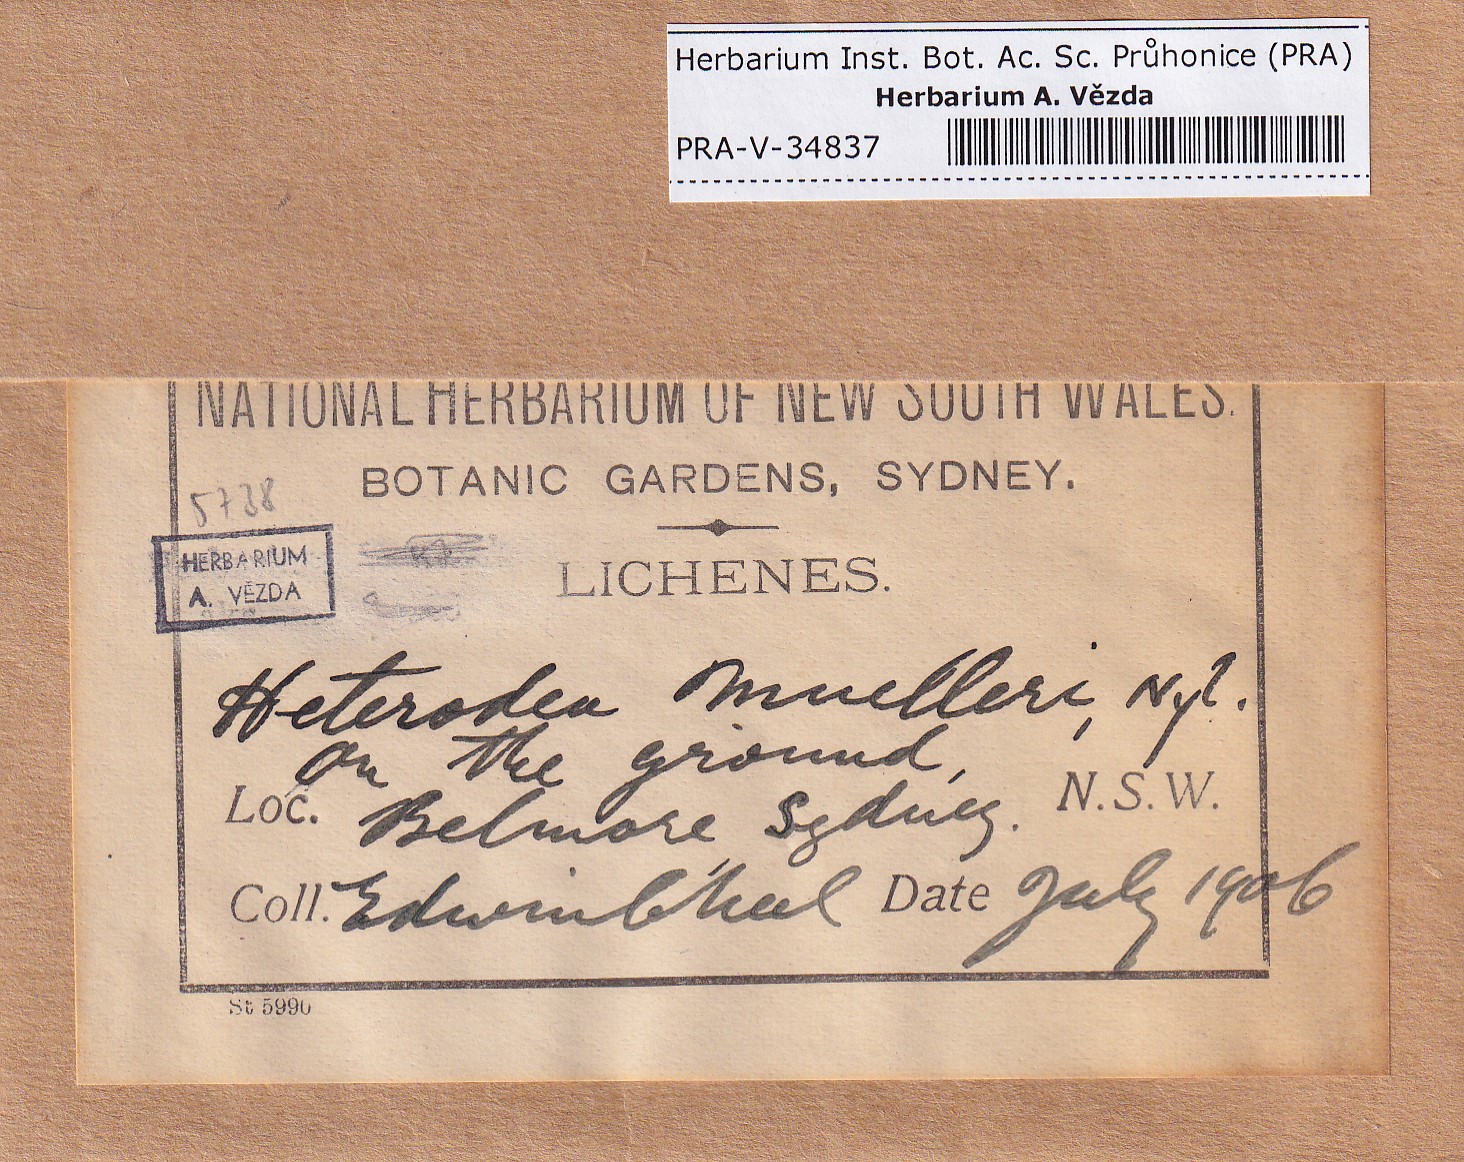 Herbarium Inst. Bot. Ac. Sc. Průhonice (PRA)
Herbarium A. Vězda
PRA-V-34837
NATIONAL HERBARIUM OF NEW SOUTH WALES.
BOTANIC GARDENS, SYDNEY.
5738
HERBARIUM
A. VĚZDA
LICHENES.
Heterodea Muelleri, Nyl.
on the ground,
Loc. Belmore Sydney. N.S.W.
Coll. Edwin Cheel Date July 1906
St 5990